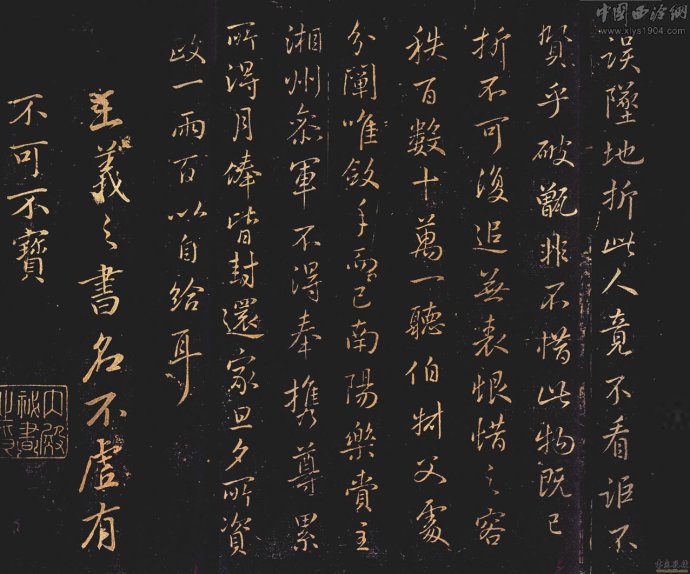 誤墜地折此人竟不看詎不
賢乎破甑非不惜此物既已
折不可復追無表恨惜之容
秩百數十萬一聽伯財父處
分闡唯斂手而已南陽樂賞主
湘州參軍不得奉攜尊累
所得月俸皆封還家旦夕所資
政一兩百以自給耳
王羲之書名不虛有
不可不寶
中國西泠網
www.xlys1904.com